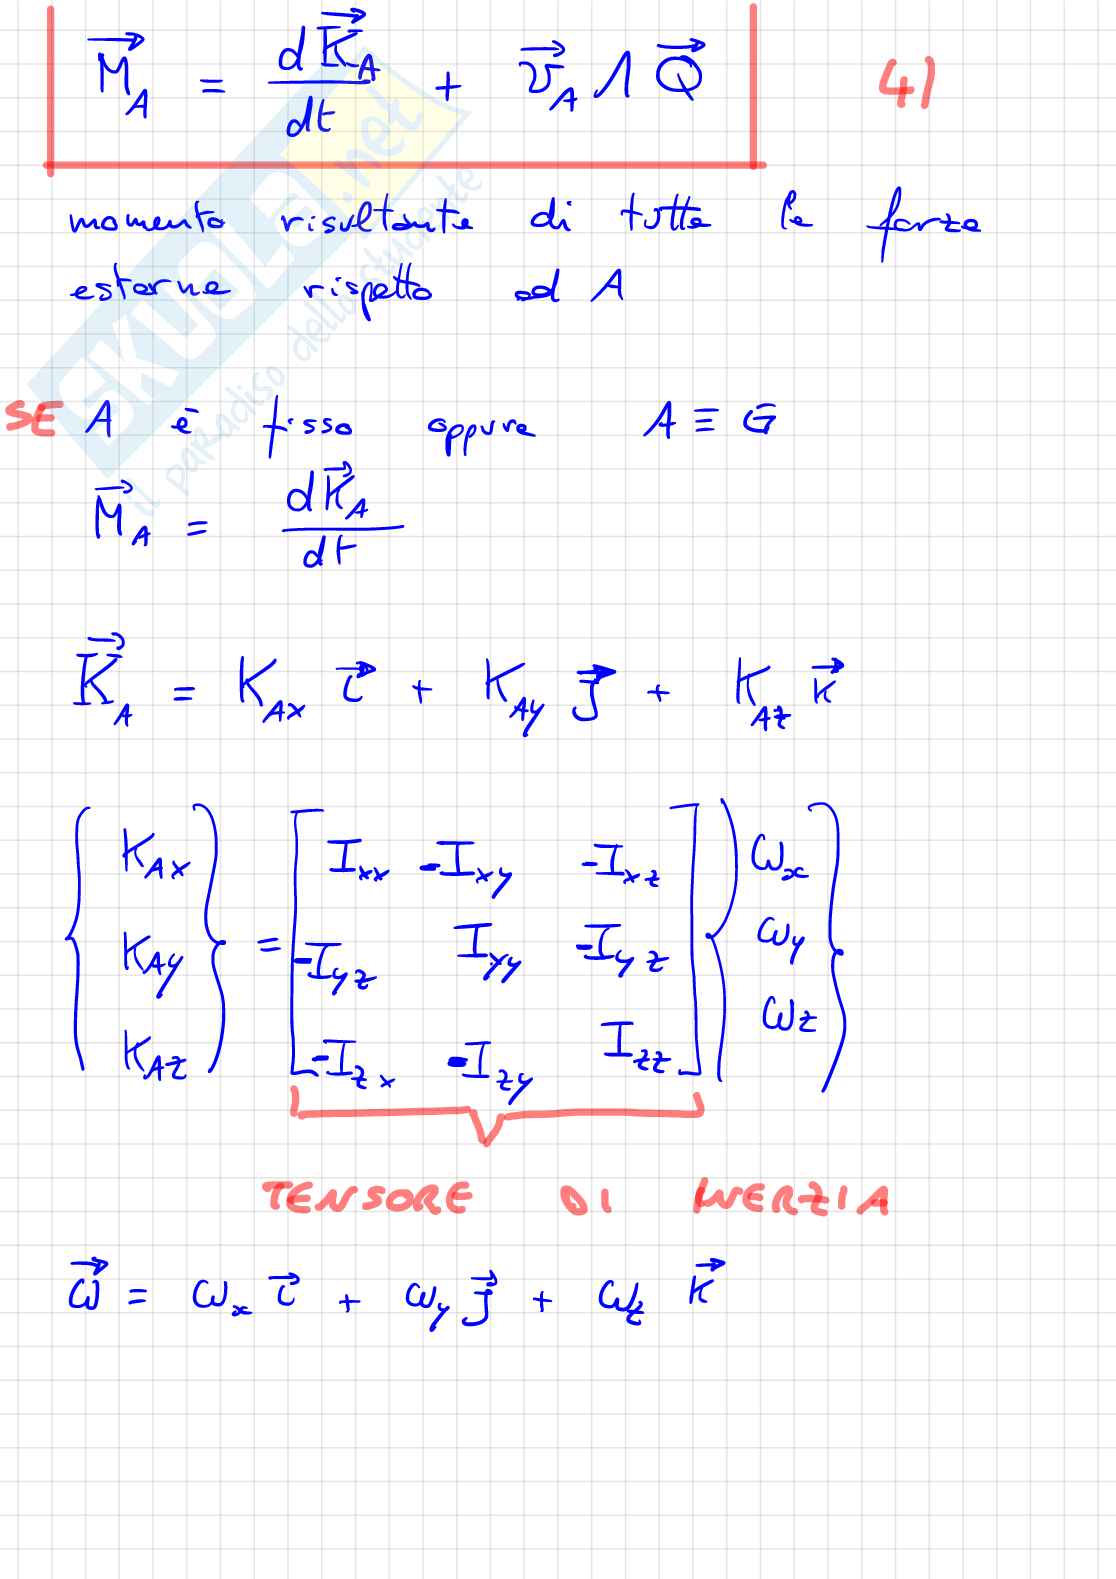 M⃗_A = dK⃗_A/dt + v⃗_A ∧ Q⃗ 4)
momento risultante di tutte le forze
esterne rispetto ad A
SE A è fisso oppure A ≡ G
M⃗_A = dK⃗_A/dt
K⃗_A = K_Ax i⃗ + K_Ay j⃗ + K_Az k⃗
{K_Ax} = [I_xx -I_xy -I_xz] {ω_x}
{K_Ay} [-I_yz I_yy -I_yz] {ω_y}
{K_Az} [-I_zx -I_zy I_zz] {ω_z}
TENSORE DI INERZIA
ω⃗ = ω_x i⃗ + ω_y j⃗ + ω_z k⃗
SKUOLA.net
il paradiso dello studente